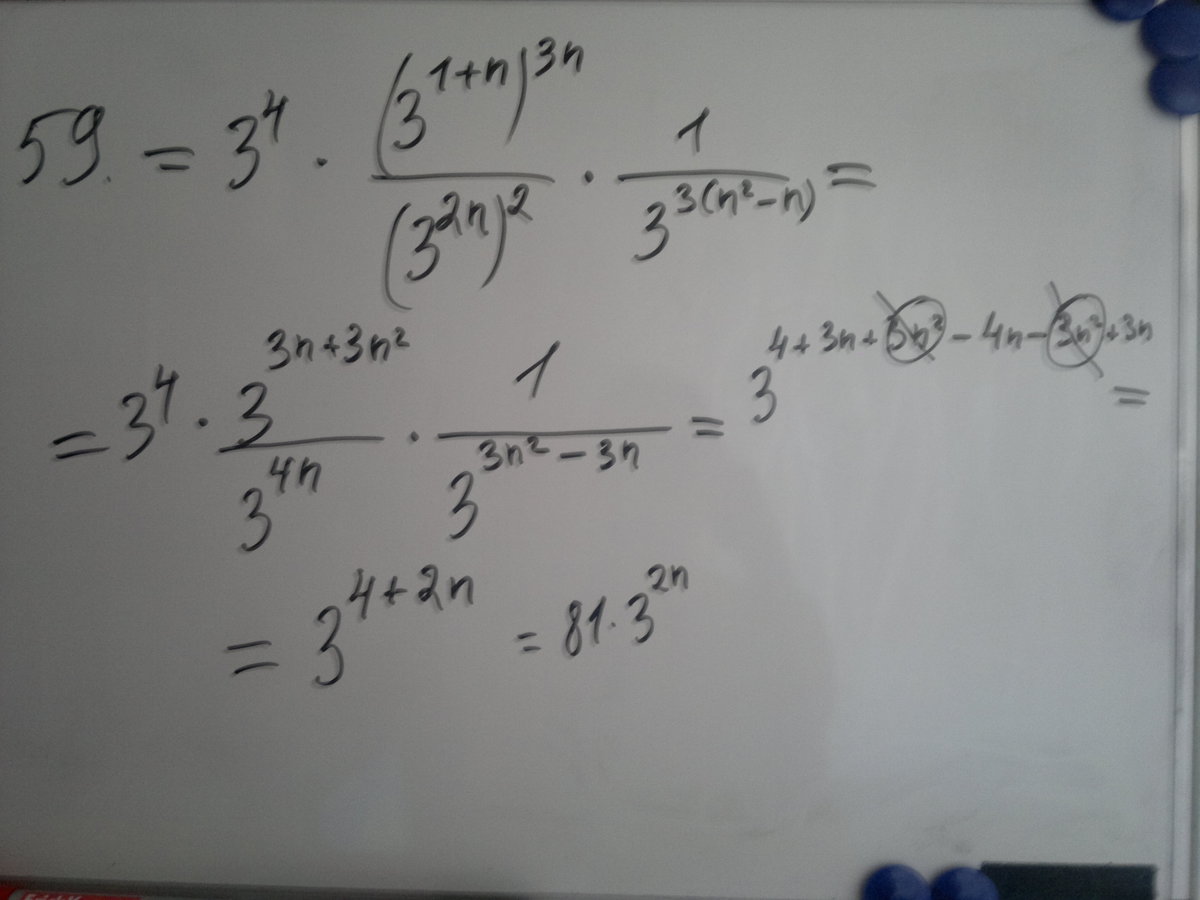 59. = 3^4 · (3^(1+n))^(3n) / (3^(2n))^2 · 1 / 3^(3(n²-n)) =
= 3^4 · 3^(3n+3n²) / 3^(4n) · 1 / 3^(3n²-3n) = 3^(4+3n+3n²-4n-3n²+3n) =
= 3^(4+2n) = 81·3^(2n)